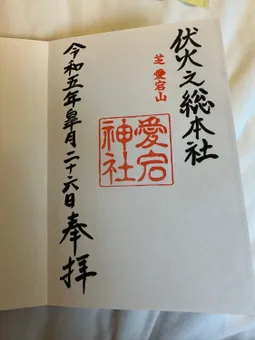 伏火之総本社
芝 愛宕山
愛宕神社
令和五年皐月二十六日 奉拝